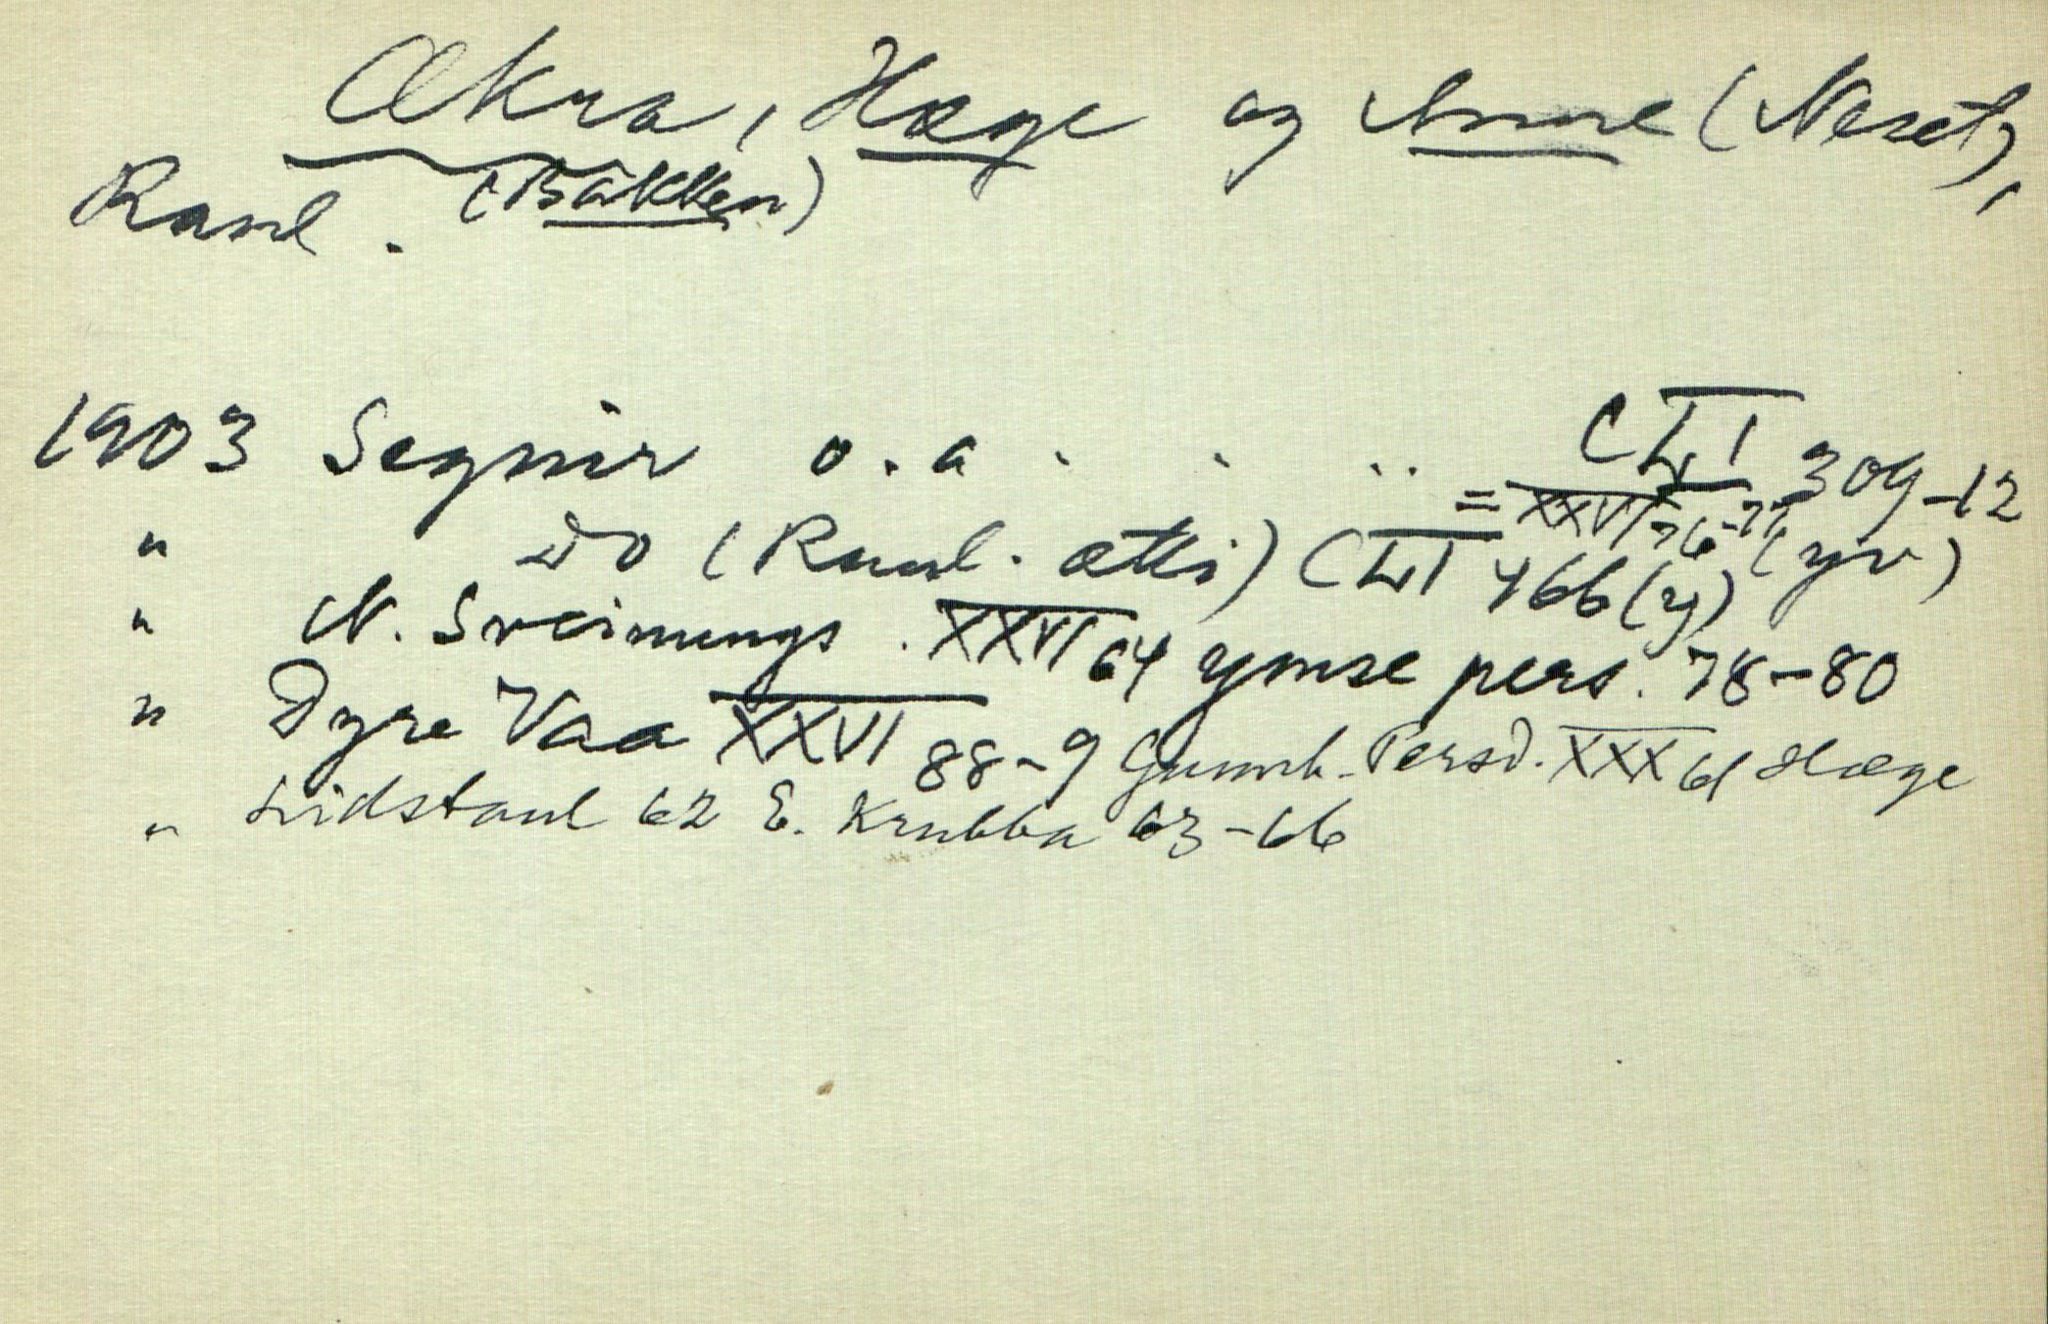 Økra, Høge og Anne (Neset),
Raul. (Bakken)
1903 Segnir o.a . . . . CLI 309-12
= XXVI 76-77 (yv)
" Do (Raul. ætti) CLI 466 (y)
" N. Sveinungs. XXVI 64 ymse pers. 78-80
" Dyre Vaa XXVI 88-9 Gunnh. Persd. XXX 61 Høge
" Lidstaul 62 E. Krubba 63-66